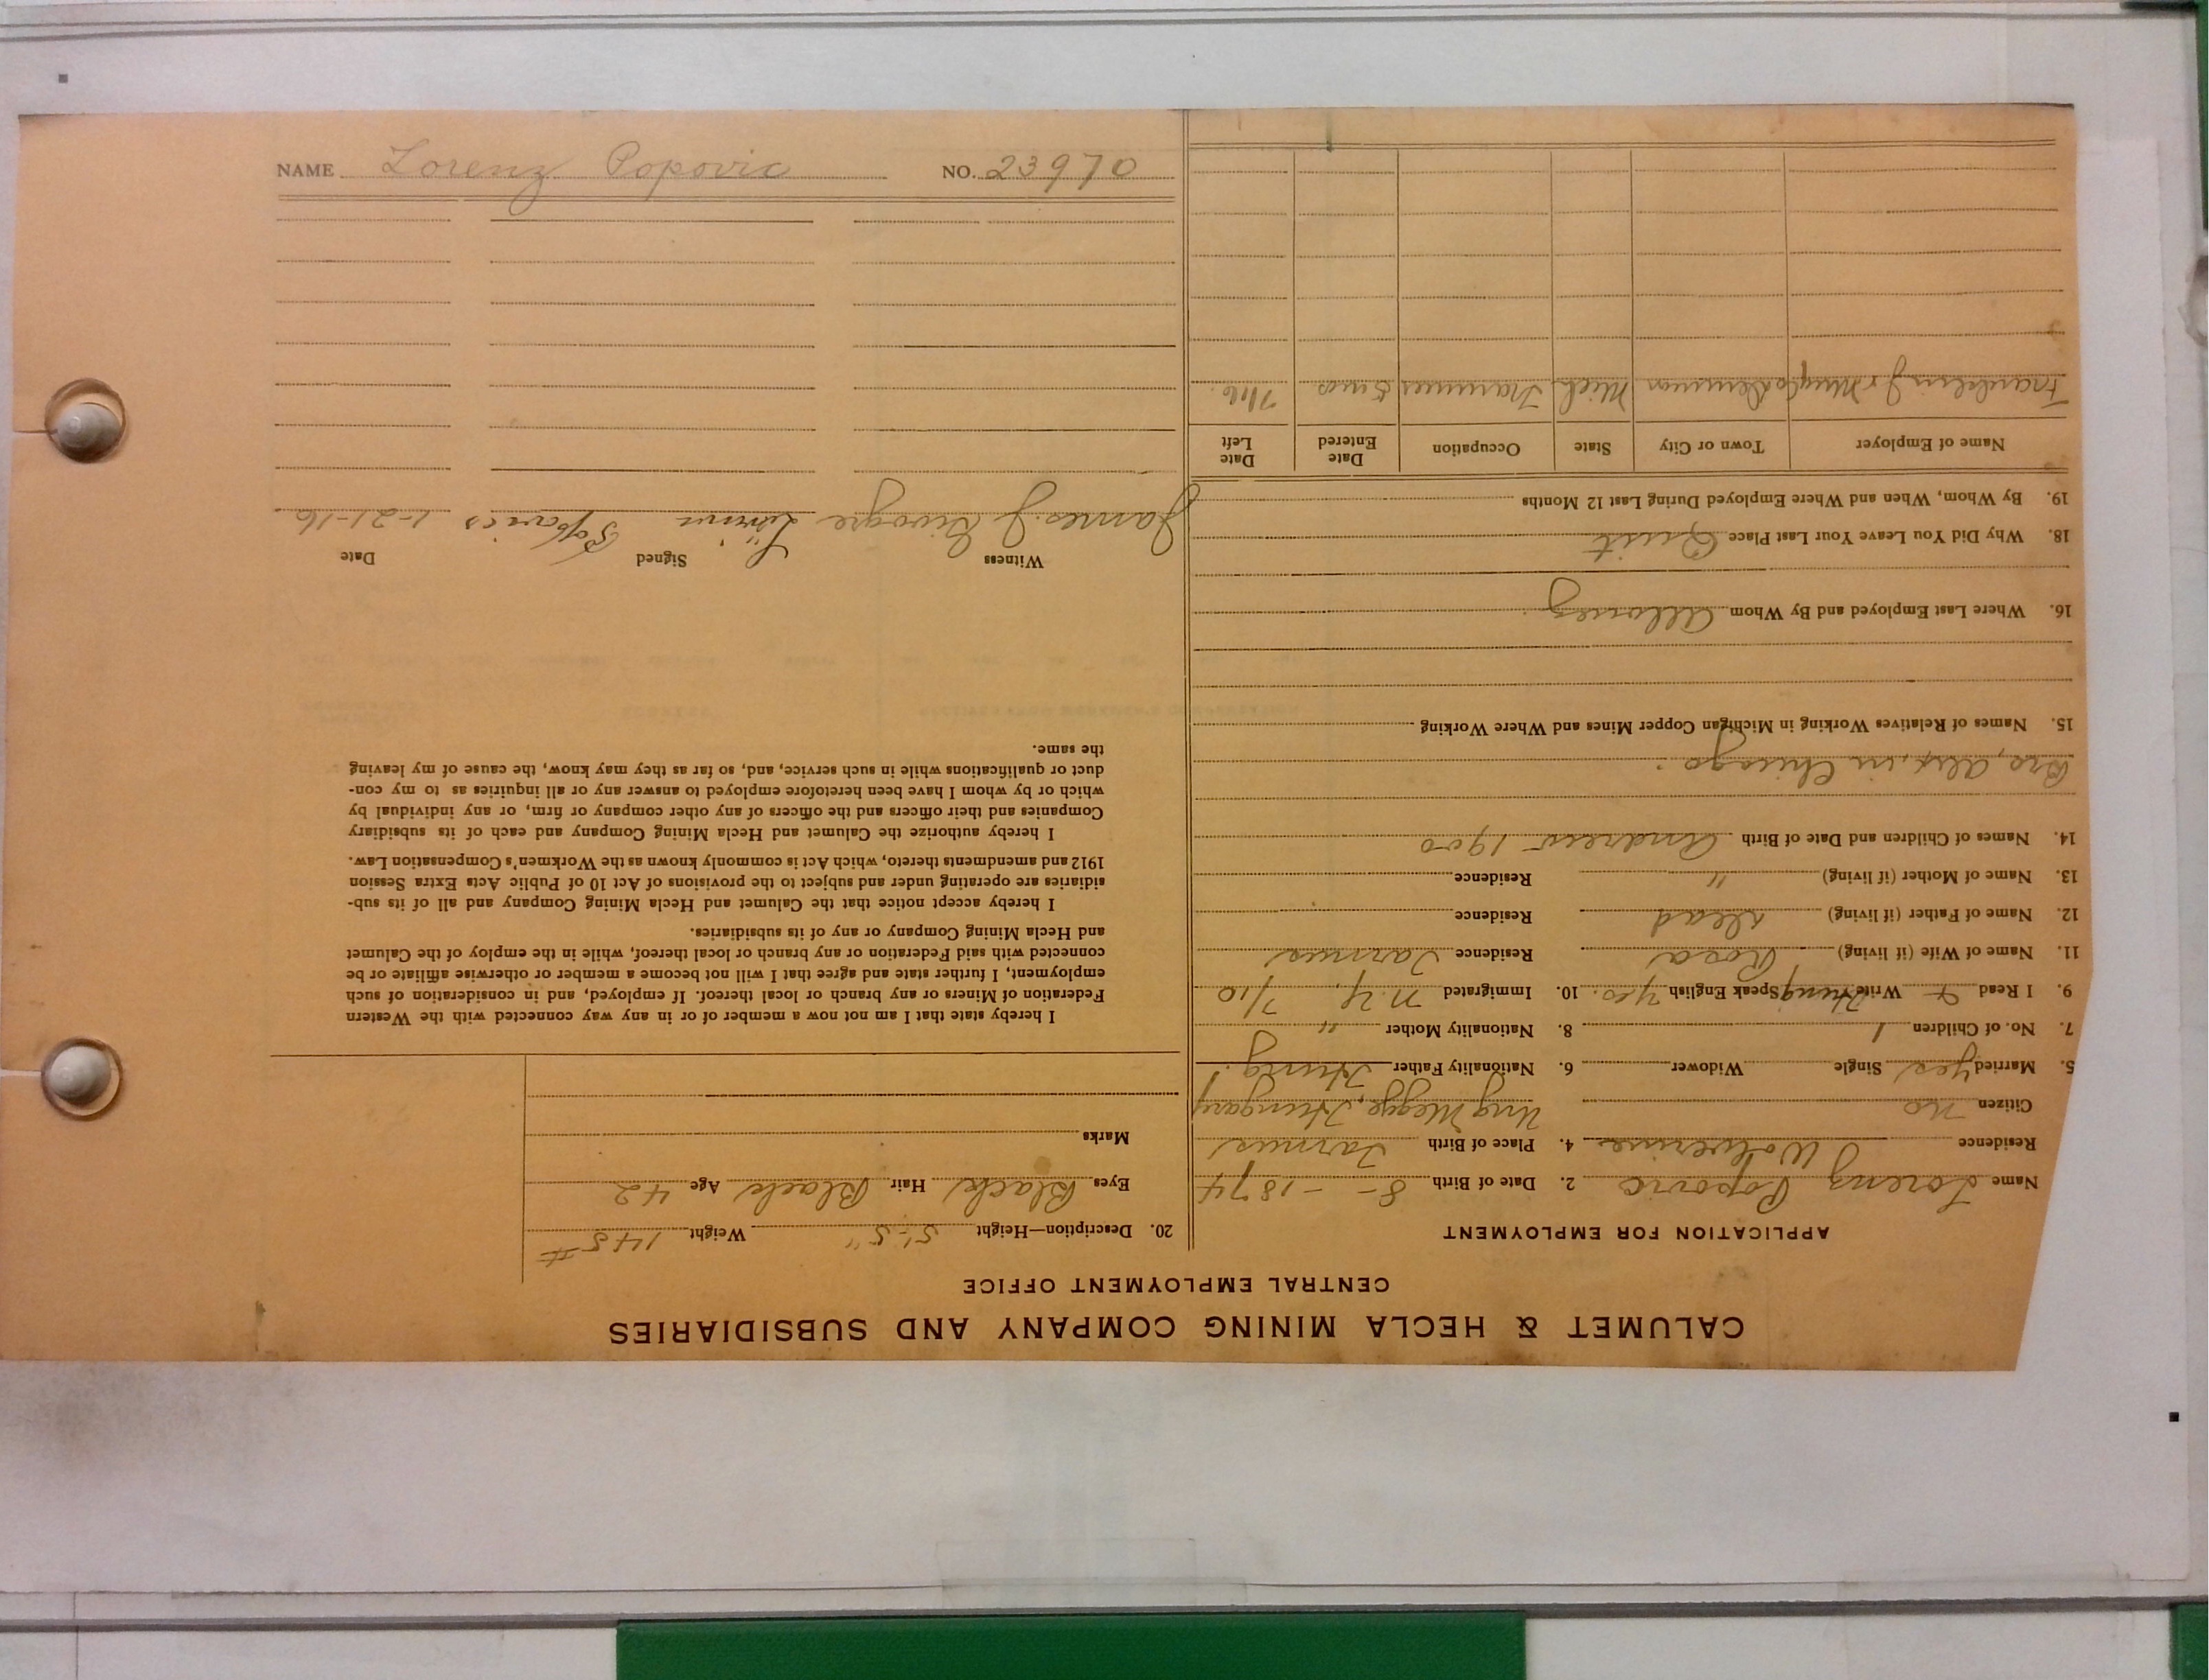 CALUMET & HECLA MINING COMPANY AND SUBSIDIARIES
CENTRAL EMPLOYMENT OFFICE
APPLICATION FOR EMPLOYMENT
Name Lorenz Popovic 2. Date of Birth 8 - 1874
Residence Wolverine 4. Place of Birth Tarnus
Citizen no Ung Megye, Hungary
5. Married yes Single Widower 6. Nationality Father Hung.
7. No. of Children 1 8. Nationality Mother "
9. I Read & Write Hung Speak English yes. 10. Immigrated N.Y. 7/10
11. Name of Wife (if living) Rosa Residence Tarnus
12. Name of Father (if living) dead Residence
13. Name of Mother (if living) " Residence
14. Names of Children and Date of Birth Andrew 1900
Bro, Alex, in Chicago.
15. Names of Relatives Working in Michigan Copper Mines and Where Working
16. Where Last Employed and By Whom Allouez
18. Why Did You Leave Your Last Place Quit
19. By Whom, When and Where Employed During Last 12 Months
Name of Employer Town or City State Occupation Date Entered Date Left
Franklin Jr Mng Co Mich Trammer 6 mos
20. Description—Height 5'-5" Weight 145#
Eyes Black Hair Black Age 42
Marks
I hereby state that I am not now a member of or in any way connected with the Western
Federation of Miners or any branch or local thereof. If employed, and in consideration of such
employment, I further state and agree that I will not become a member or otherwise affiliate or be
connected with said Federation or any branch or local thereof, while in the employ of the Calumet
and Hecla Mining Company or any of its subsidiaries.
I hereby accept notice that the Calumet and Hecla Mining Company and all of its sub-
sidiaries are operating under and subject to the provisions of Act 10 of Public Acts Extra Session
1912 and amendments thereto, which Act is commonly known as the Workmen's Compensation Law.
I hereby authorize the Calumet and Hecla Mining Company and each of its subsidiary
Companies and their officers and the officers of any other company or firm, or any individual by
which or by whom I have been heretofore employed to answer any or all inquiries as to my con-
duct or qualifications while in such service, and, so far as they may know, the cause of my leaving
the same.
Witness Signed Date
James J 1-21-16
NAME Lorenz Popovic NO. 23970